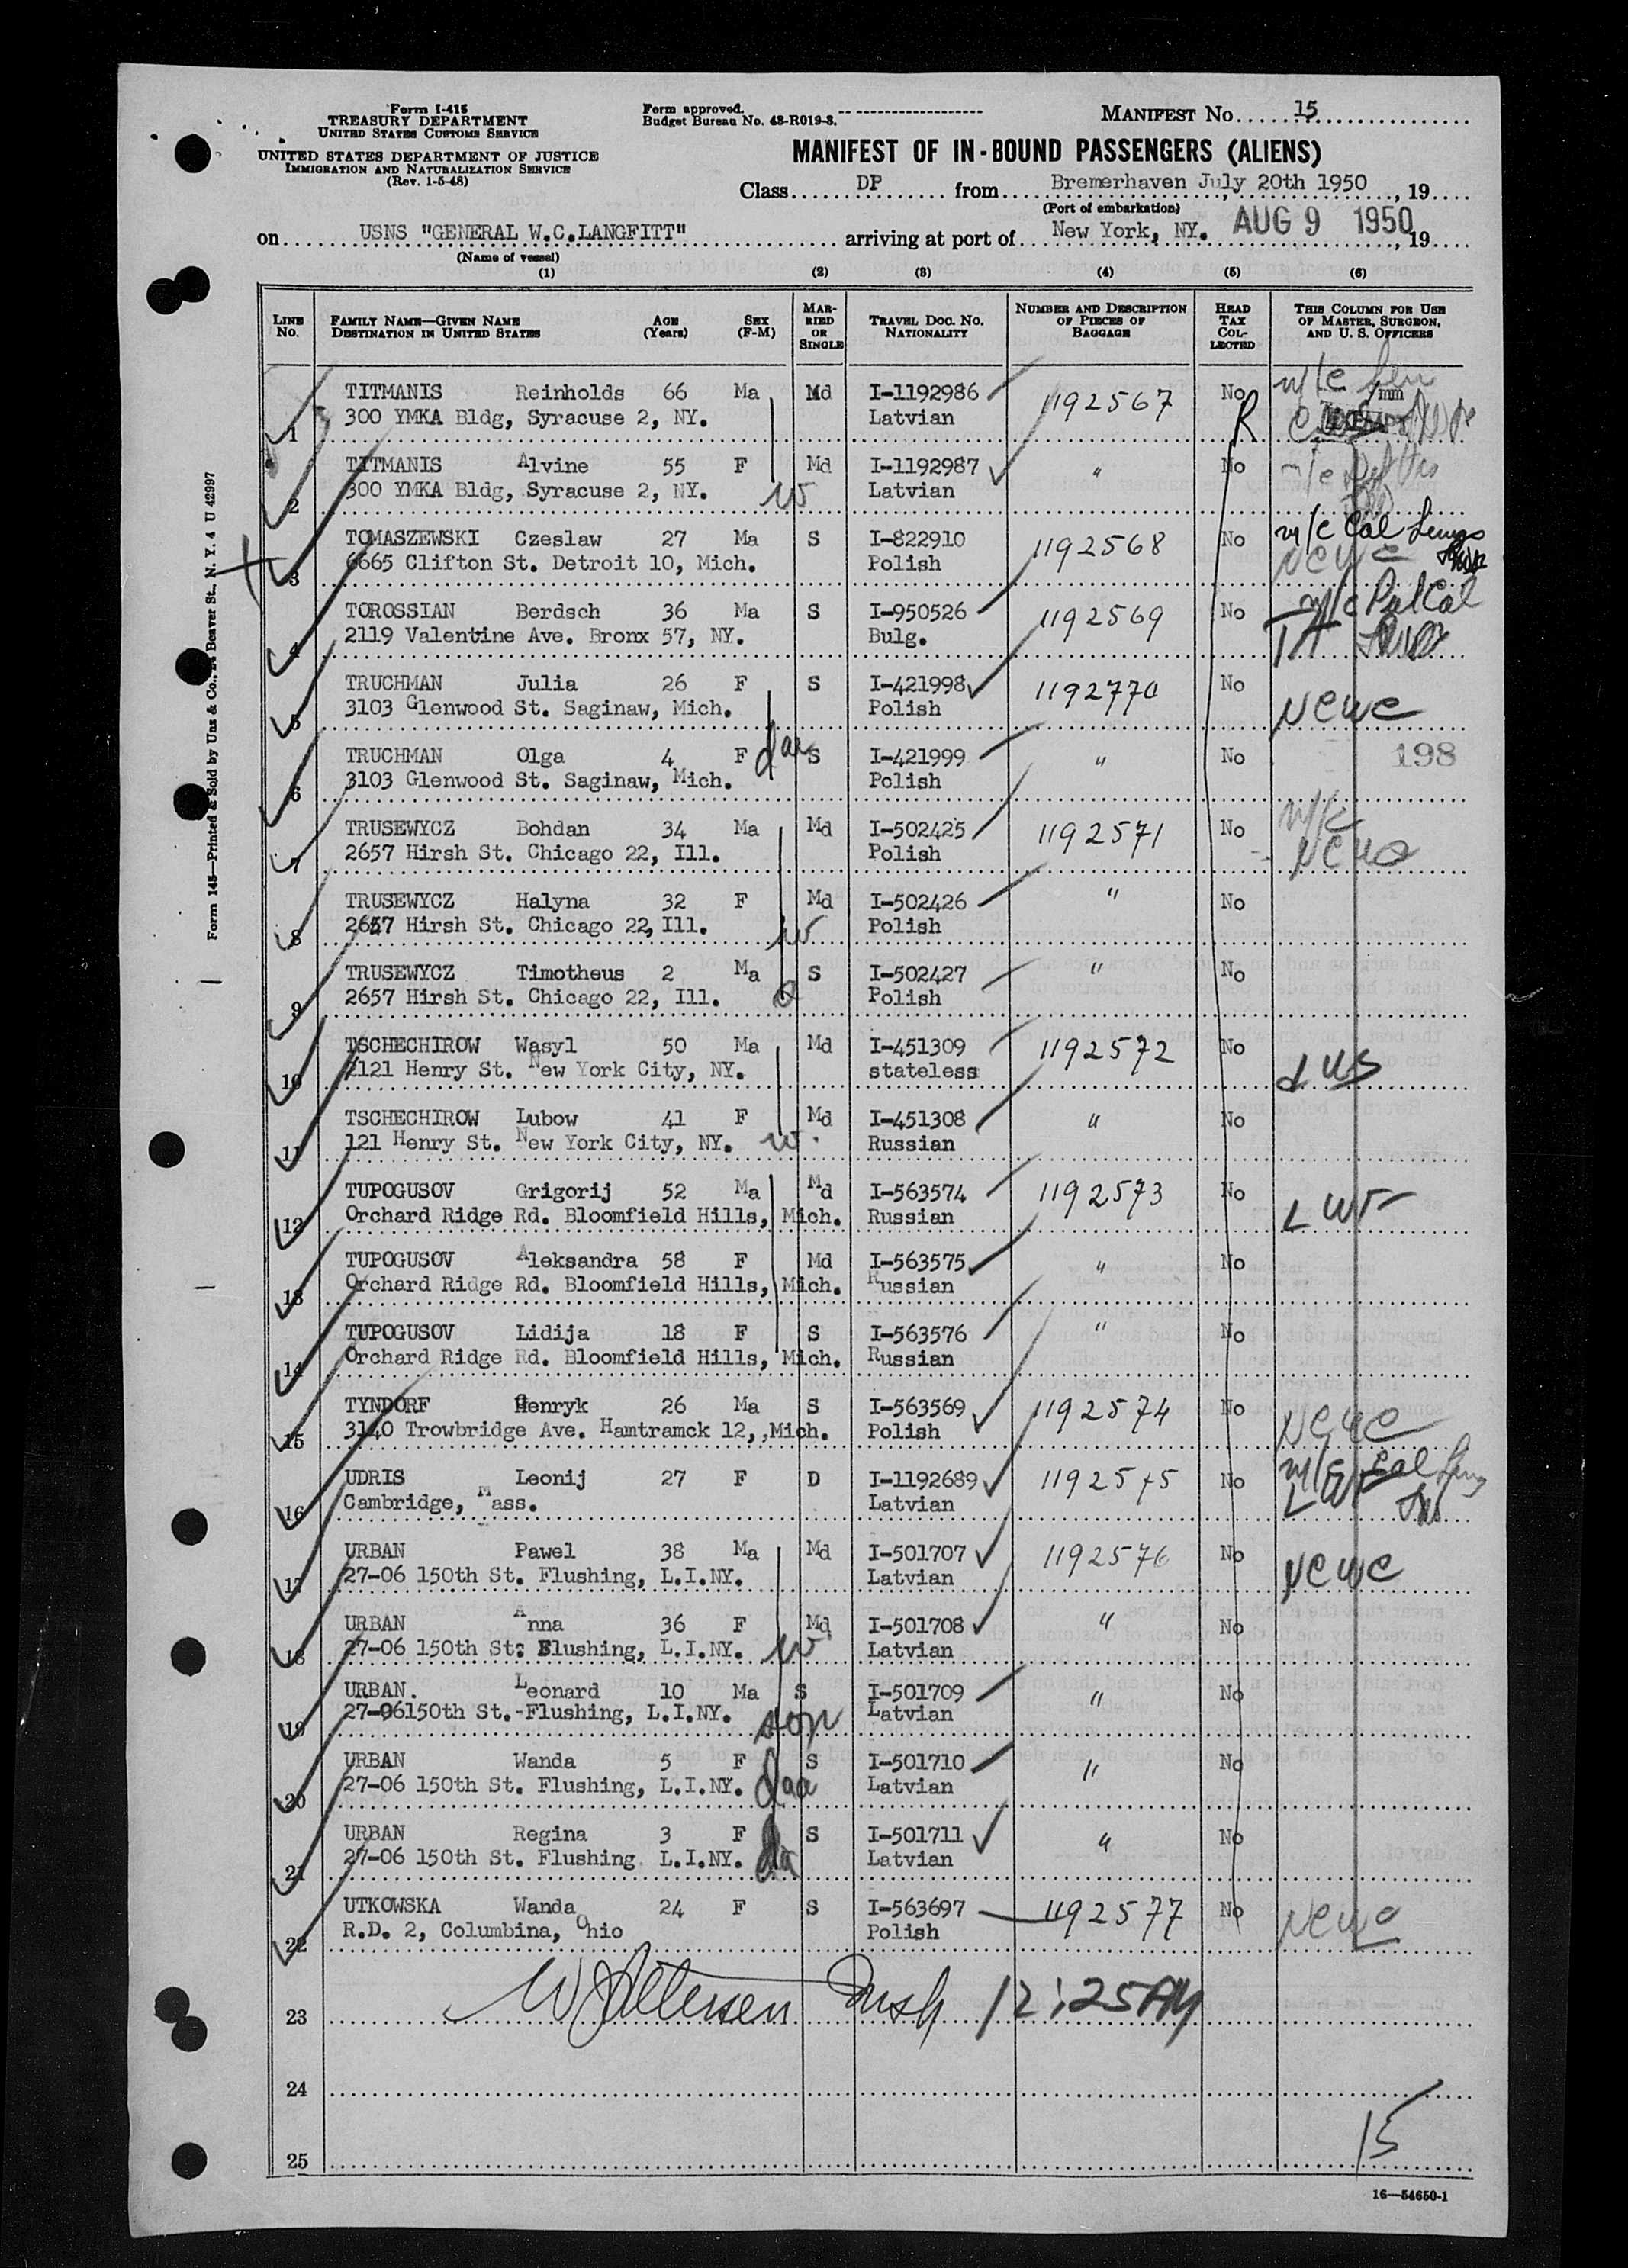 Form I-415
TREASURY DEPARTMENT
UNITED STATES CUSTOMS SERVICE
UNITED STATES DEPARTMENT OF JUSTICE
IMMIGRATION AND NATURALIZATION SERVICE
(Rev. 1-5-48)
Form approved.
Budget Bureau No. 43-R019-3.
MANIFEST No. 15
MANIFEST OF IN-BOUND PASSENGERS (ALIENS)
Class DP from Bremerhaven July 20th 1950, 19
(Port of embarkation)
on USNS "GENERAL W.C.LANGFITT" arriving at port of New York, NY. AUG 9 1950, 19
(Name of vessel)
(1) (2) (3) (4) (5) (6)
LINE NO. FAMILY NAME—GIVEN NAME DESTINATION IN UNITED STATES AGE (Years) SEX (F-M) MARRIED OR SINGLE TRAVEL DOC. NO. NATIONALITY NUMBER AND DESCRIPTION OF PIECES OF BAGGAGE HEAD TAX COLLECTED THIS COLUMN FOR USE OF MASTER, SURGEON, AND U. S. OFFICERS
TITMANIS Reinholds 66 Ma Md I-1192986 1192567 No m/c
1 300 YMKA Bldg, Syracuse 2, NY. Latvian R
TITMANIS Alvine 55 F Md I-1192987 " No
2 300 YMKA Bldg, Syracuse 2, NY. w Latvian
TOMASZEWSKI Czeslaw 27 Ma S I-822910 1192568 No m/c Cal Lungs
3 6665 Clifton St. Detroit 10, Mich. Polish NCWC
TOROSSIAN Berdsch 36 Ma S I-950526 1192569 No m/c Pul Cal
4 2119 Valentine Ave. Bronx 57, NY. Bulg. TA
TRUCHMAN Julia 26 F S I-421998 1192770 No
5 3103 Glenwood St. Saginaw, Mich. Polish NCWC
TRUCHMAN Olga 4 F dau S I-421999 " No 198
6 3103 Glenwood St. Saginaw, Mich. Polish
TRUSEWYCZ Bohdan 34 Ma Md I-502425 1192571 No m/c
7 2657 Hirsh St. Chicago 22, Ill. Polish NCWC
TRUSEWYCZ Halyna 32 F Md I-502426 " No
8 2657 Hirsh St. Chicago 22, Ill. w Polish
TRUSEWYCZ Timotheus 2 Ma S I-502427 " No
9 2657 Hirsh St. Chicago 22, Ill. Polish
TSCHECHIROW Wasyl 50 Ma Md I-451309 1192572 No
10 121 Henry St. New York City, NY. stateless
TSCHECHIROW Lubow 41 F Md I-451308 " No
11 121 Henry St. New York City, NY. w. Russian
TUPOGUSOV Grigorij 52 Ma Md I-563574 1192573 No
12 Orchard Ridge Rd. Bloomfield Hills, Mich. Russian LWF
TUPOGUSOV Aleksandra 58 F Md I-563575 " No
13 Orchard Ridge Rd. Bloomfield Hills, Mich. Russian
TUPOGUSOV Lidija 18 F S I-563576 " No
14 Orchard Ridge Rd. Bloomfield Hills, Mich. Russian
TYNDORF Henryk 26 Ma S I-563569 1192574 No
15 3140 Trowbridge Ave. Hamtramck 12, Mich. Polish NCWC
UDRIS Leonij 27 F D I-1192689 1192575 No m/c Cal Lung
16 Cambridge, Mass. Latvian LWF
URBAN Pawel 38 Ma Md I-501707 1192576 No
17 27-06 150th St. Flushing, L.I.NY. Latvian NCWC
URBAN Anna 36 F Md I-501708 " No
18 27-06 150th St: Flushing, L.I.NY. w Latvian
URBAN. Leonard 10 Ma S I-501709 " No
19 27-06150th St.-Flushing, L.I.NY. son Latvian
URBAN Wanda 5 F S I-501710 " No
20 27-06 150th St. Flushing, L.I.NY. dau Latvian
URBAN Regina 3 F S I-501711 " No
21 27-06 150th St. Flushing L.I.NY. da Latvian
UTKOWSKA Wanda 24 F S I-563697 1192577 No
22 R.D. 2, Columbina, Ohio Polish NCWC
23 Insp 12:25 AM
24
15
25
16—54650-1
Form 145—Printed & Sold by Unz & Co., 24 Beaver St., N. Y. 4 U 42997